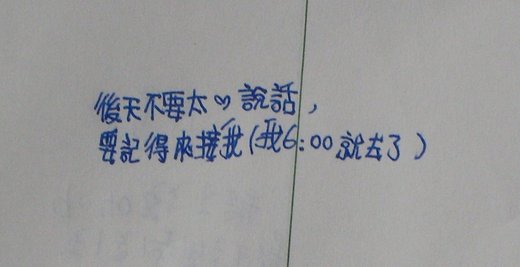 後天不要太♡說話，
要記得來接我(我6:00就去了)